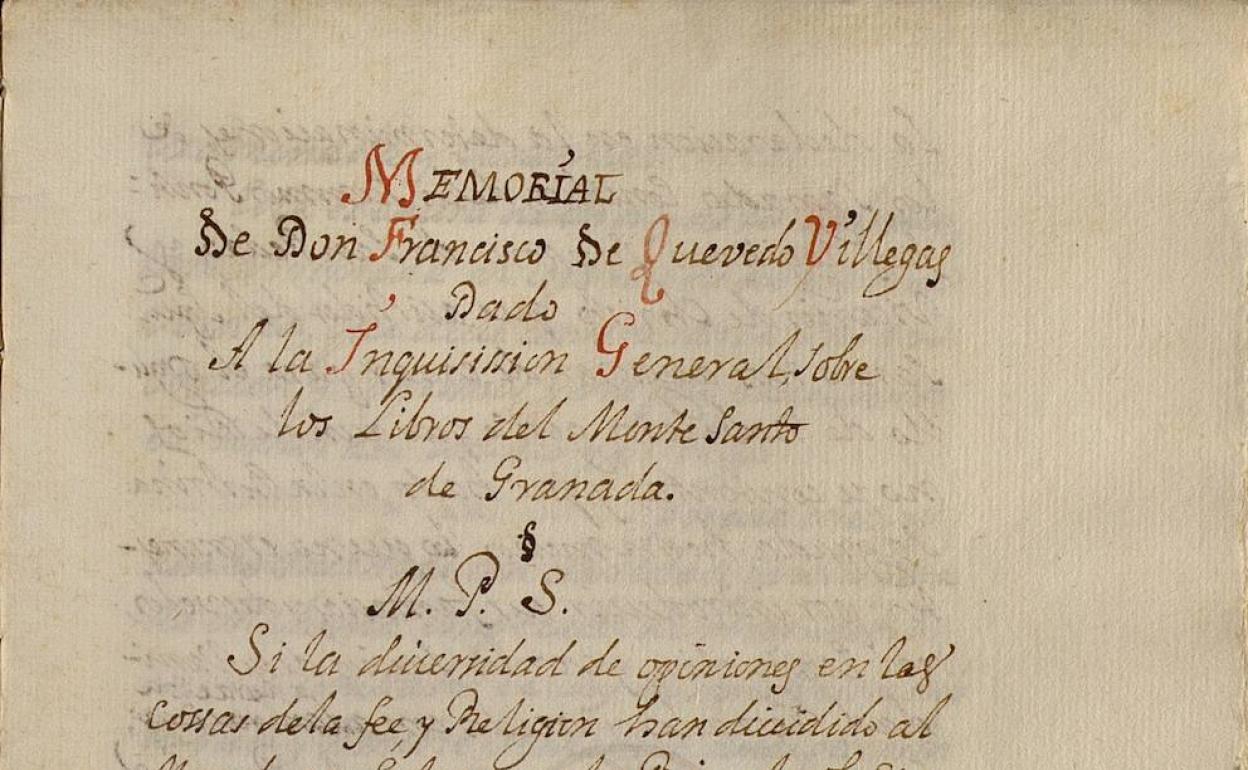 MEMORIAL
De Don Francisco De Quevedo Villegas
Dado
A la Inquisission General, sobre
los Libros del Monte Santo
de Granada.
§
M. P. S.
Si la diuersidad de opiniones en las
cossas de la fee, y Religion han diuidido al